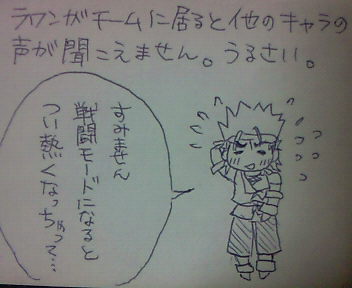 ラワンがチームに居ると他のキャラの
声が聞こえません。うるさい。
すみません
戦闘モードになると
つい熱くなっちゃって…